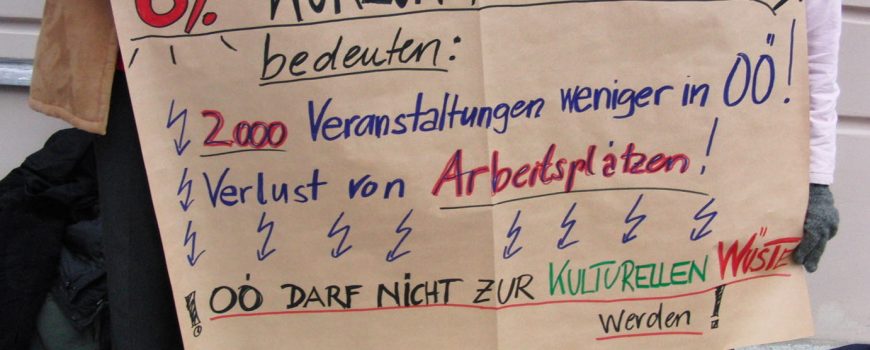 bedeuten:
2000 Veranstaltungen weniger in OÖ!
Verlust von Arbeitsplätzen!
! OÖ DARF NICHT ZUR KULTURELLEN WÜSTE
werden !